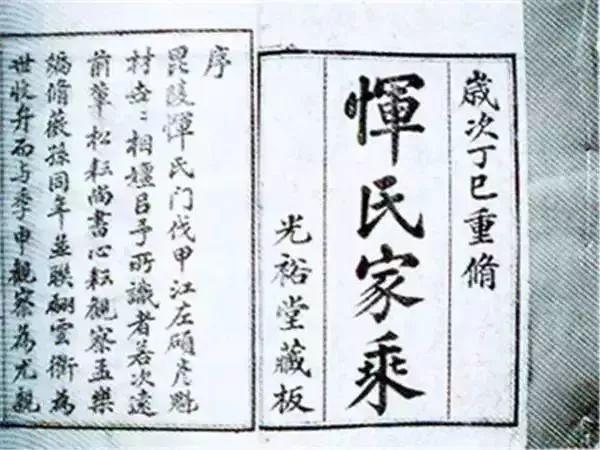 歲次丁巳重脩
惲氏家乘
光裕堂藏板
序
毘陵惲氏门伐甲江左碩彦魁
材世〻相嬗㠯予所識者若次遠
前輩松耘尚書心耘觀察孟樂
編脩薇孫同年並聯翩雲衢為
世收弁而与季申觀察為尤親